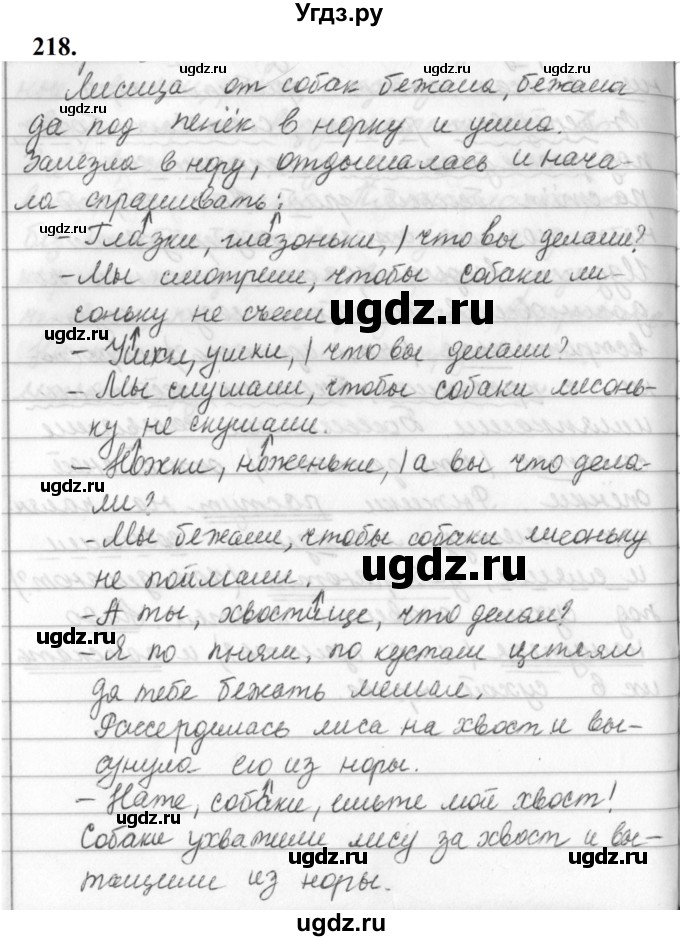 Угдз.ру
218.
Лисица от собак бежала, бежала
да под пенёк в норку и ушла.
Залезла в нору, отдышалась и нача-
ла спрашивать:
- Глазки, глазоньки, | что вы делали?
- Мы смотрели, чтобы собаки ли-
соньку не съели
- Ушки, ушки, | что вы делали?
- Мы слушали, чтобы собаки лисонь-
ку не скушали.
- Ножки, ноженьки, | а вы что дела-
ли?
- Мы бежали, чтобы собаки лисоньку
не поймали.
- А ты, хвостище, что делал?
- Я по пням, по кустам цеплял
да тебе бежать мешал.
Рассердилась лиса на хвост и вы-
сунула его из норы.
- Нате, собаки, ешьте мой хвост!
Собаки ухватили лису за хвост и вы-
тащили из норы.
ugdz.ru